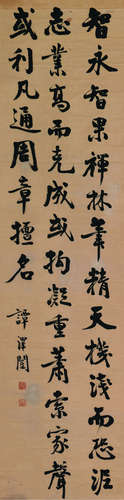 智永智果禪林筆精天機淺而恐泥
志業高而克成或拘凝重蕭索家聲
或利凡通周章擅名
譚澤闓